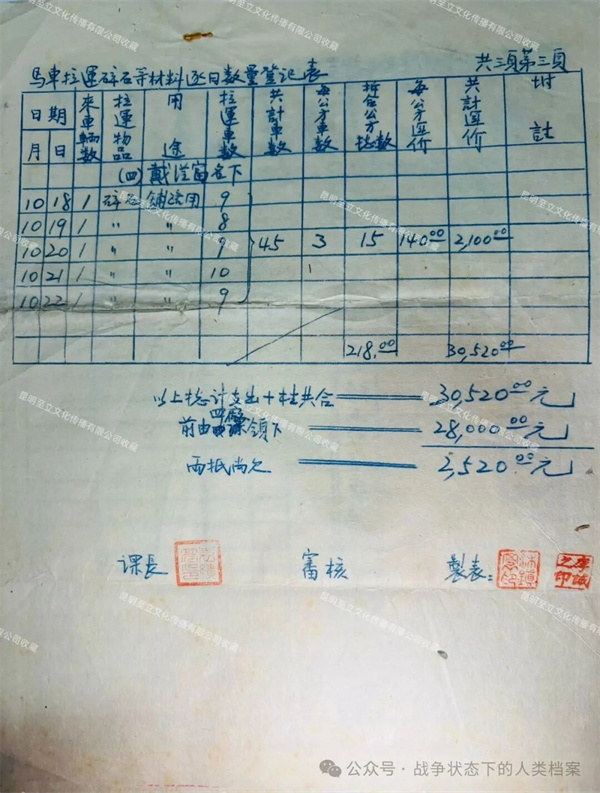 昆明至立文化传播有限公司收藏
共三頁第三頁
馬車拉運碎石等材料逐日數量登記表
日期 來車輛數 拉運物品 用途 拉運車數 共計車數 每公方車數 折合公方數 每公方運价 共計運价 附註
月 日
(四)戴
10 18 1 碎石 鋪路用 9
10 19 1 〃 〃 8
10 20 1 〃 〃 9 45 3 15 140.00 2,100.00
10 21 1 〃 〃 10
10 22 1 〃 〃 9
218.00 30,520.00
以上總計支出 共合 30,520.00元
前由 領下 28,000.00元
兩抵尚欠 2,520.00元
課長 審核 製表:
公众号·战争状态下的人类档案